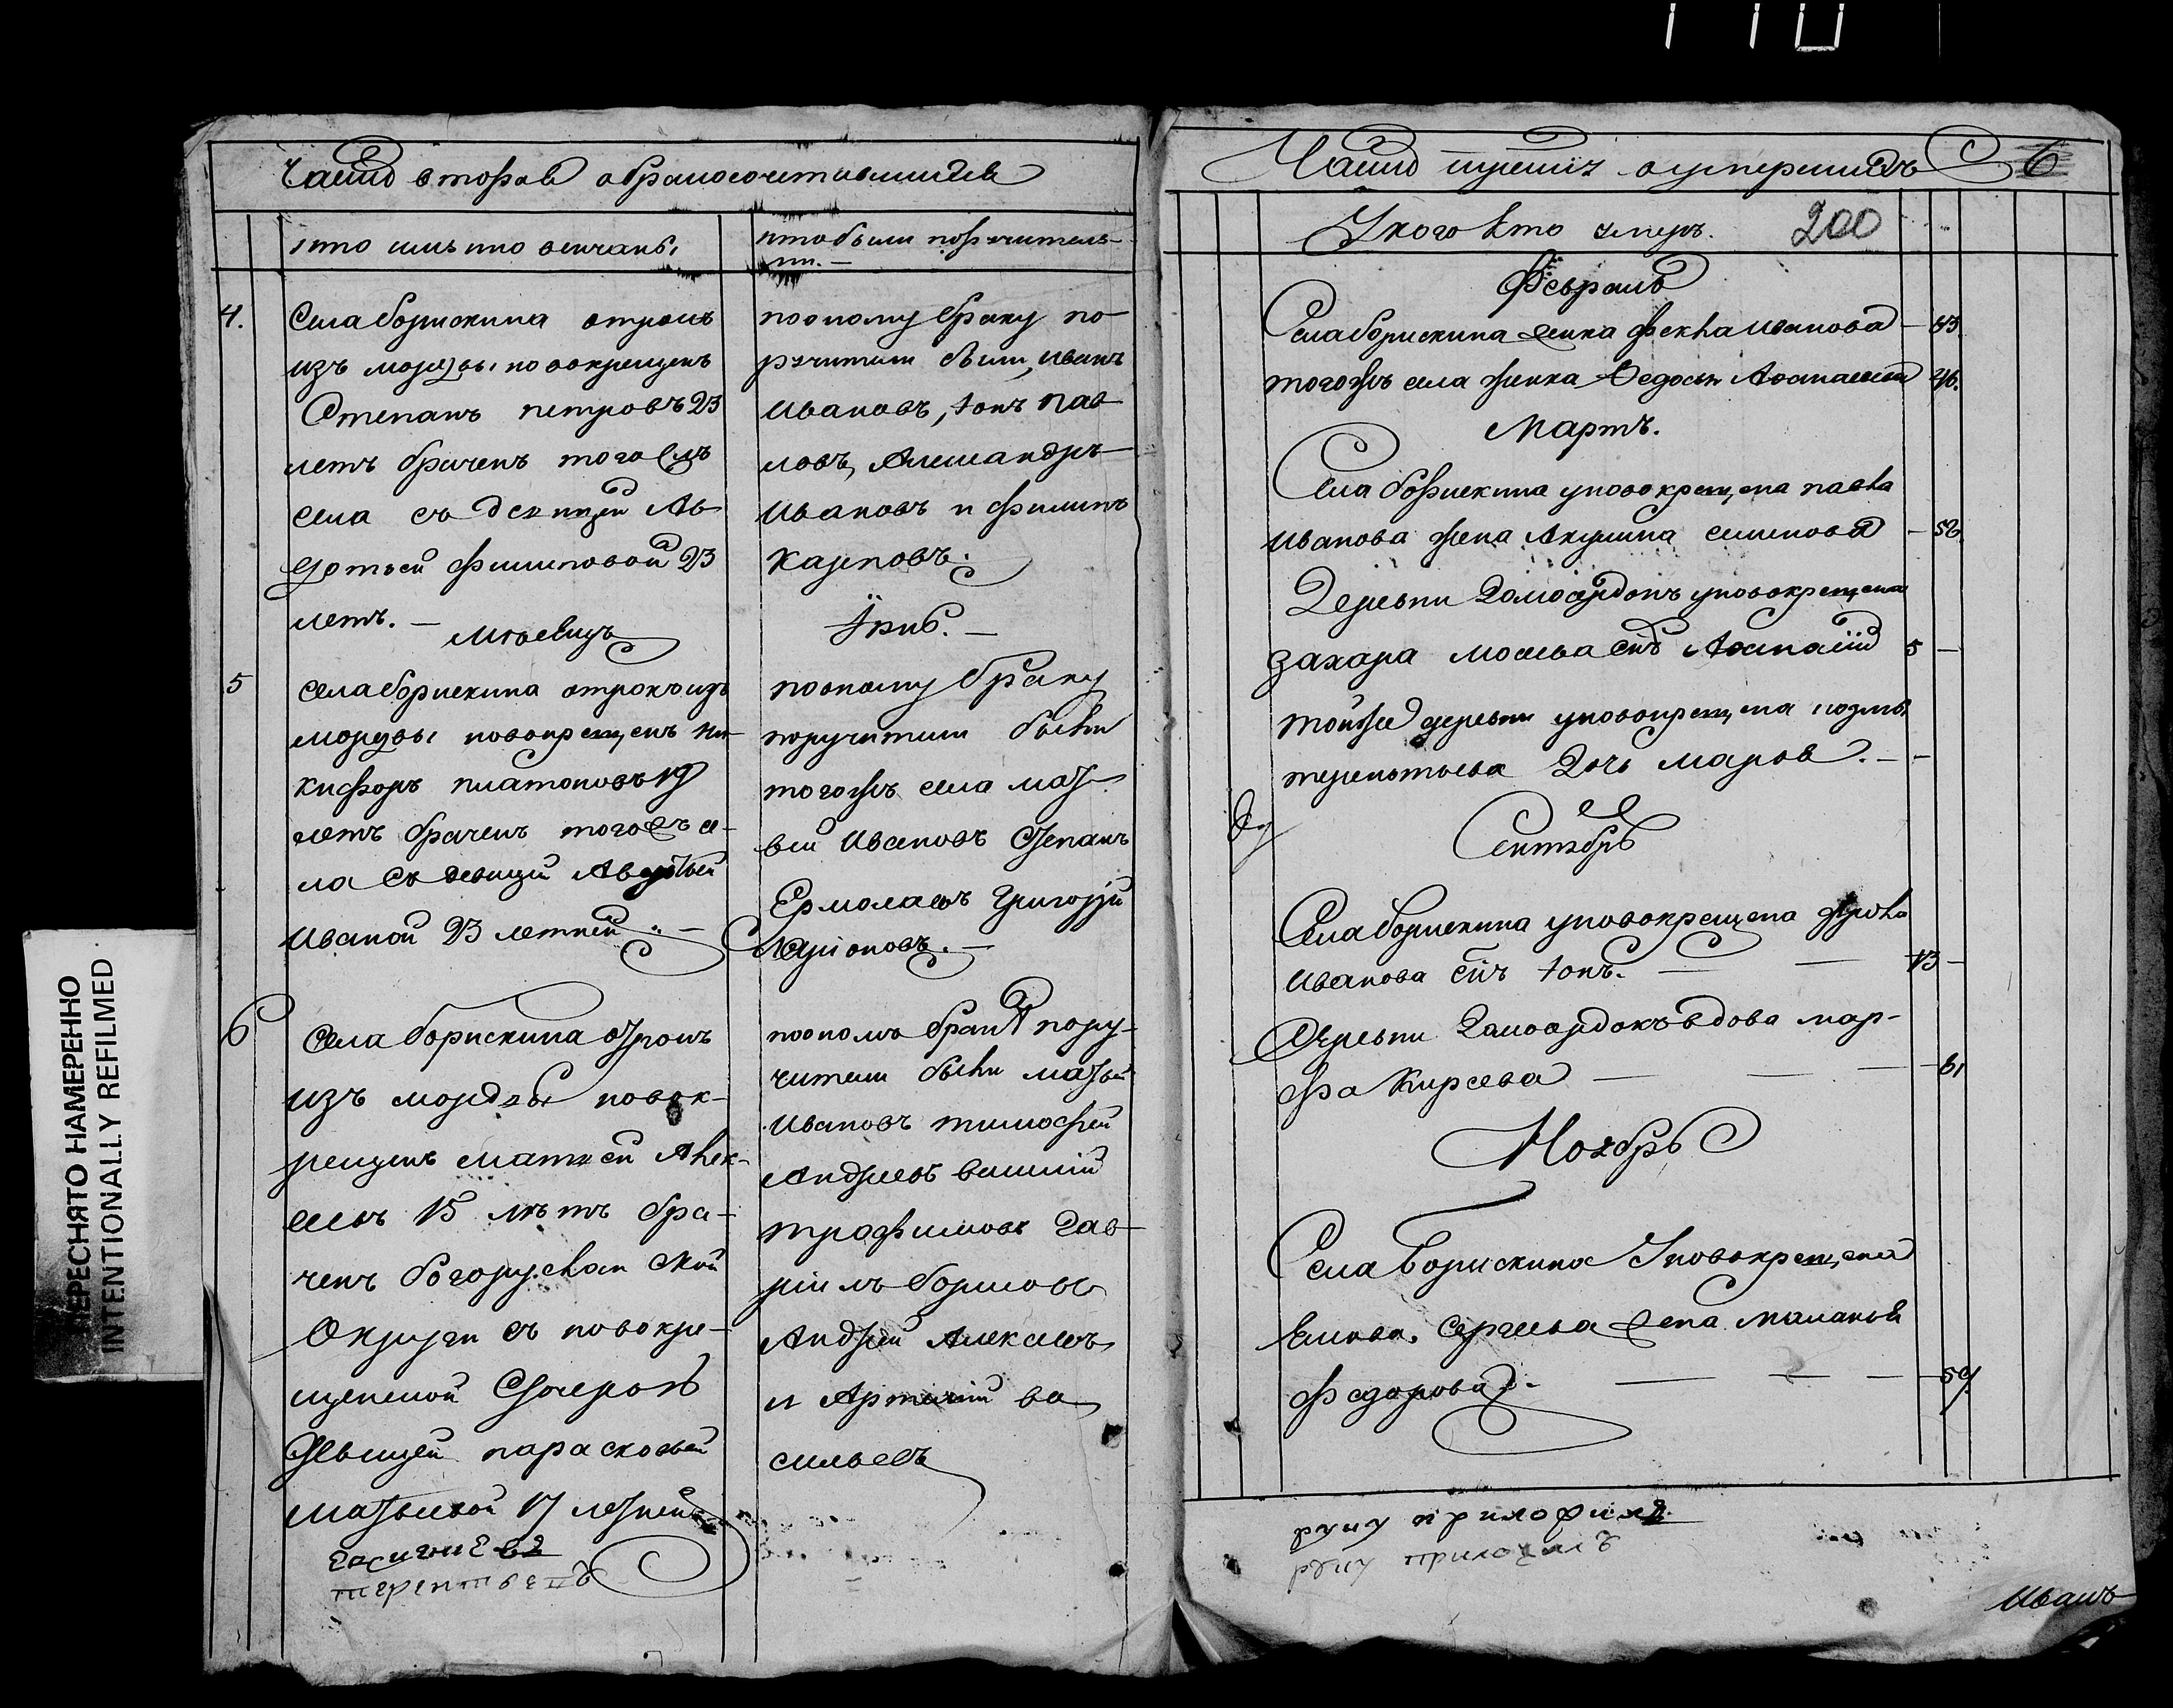 Часть вторая обракосочетавшихся
кто имяно венчаны
кто были поручитель-
ми. —
4.
Села борискина отрокъ
изъ мордвы новокрещенъ
Степанъ петровъ 23
летъ браченъ того жъ
села съ девицей Ав-
дотьей филиповой 23
летъ. —
поономУ браку по-
ручители были, иванъ
ивановъ, іонъ пав-
ловъ, Александръ
ивановъ и филипъ
карповъ.
5
села борискина отрокъ изъ
мордвы новокрещенъ ни-
кифоръ платоновъ 19
летъ браченъ того жъ се-
ла съ девицей Авдотьей
иваной 23 летней. —
пооному браку
поручители были
тогожъ села мат-
вей ивановъ Степанъ
Ермолаевъ григорій
ларионовъ. —
6
села борискина отрокъ
изъ мордвы новок-
рещенъ матвей Алек-
сеевъ 15 летъ бра-
ченъ богорусланской
Округи съ новокре-
щеной дочерью
девицей парасковьей
матвевой 17 летней
терентьевъ
поономъ браке пору-
чители были матвей
ивановъ тимофей
Андреевъ василій
трофимовъ гав-
риілъ борисовъ
Андрей Алексеевъ
и Артемій ва
сильевъ
Часть третія оумершихъ
6
Укого кто умеръ.
200
Февраль
Села борискина женка фекла иванова — 43
тогожъ села женка Федосья Афанасьева 46.
Мартъ.
Села борискина уновокрещена павла
иванова жена Акулина семенова — 56
Деревни уновокрещена
захара моисеева снъ Афанасій 5 —
тойже деревни уновокрещена козмы
терентьева дочь марья. — —
Сентябрь
Села борискина уновокрещена фрола
иванова снъ іонъ. — — 13 —
Деревни вдова мар-
фа Кирсева — — — 61
Ноябрь
Села Борискина Уновокрещена
Сергеева жена маланья
федорова. — — — 59
руку приложилъ
руку приложилъ
иванъ
ПЕРЕСНЯТО НАМЕРЕННО
INTENTIONALLY REFILMED